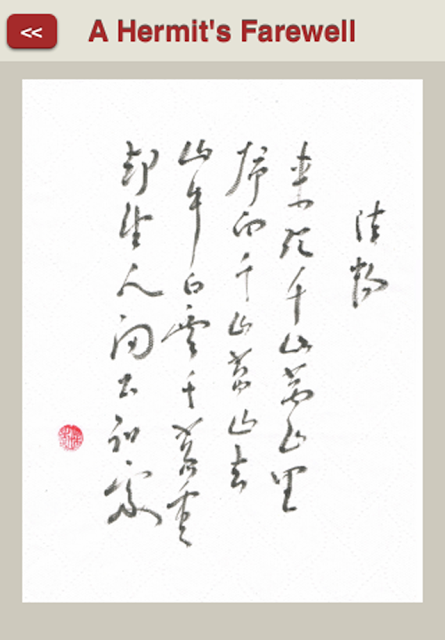 <<
A Hermit's Farewell
来從千山萬山里
歸向千山萬山去
山中白雲千萬重
却望人间不知處